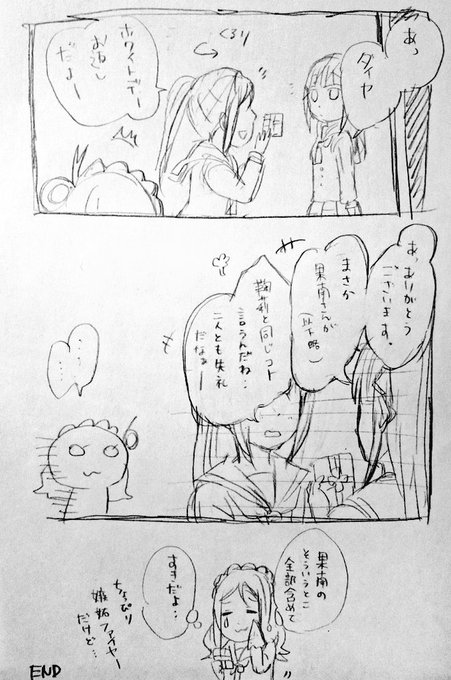 あっ
ダイヤ
くるり
ホワイトデー
お返し
だよー
あっ、ありがとう
ございます。
まさか
果南さんが
(以下略)
鞠莉と同じコト
言うんだね‥
二人とも失礼
だなぁー
‥‥
‥。
果南の
そういうとこ
全部含めて
すきだよ‥
ちょっぴり
嫉妬ファイヤー
だけど‥
END